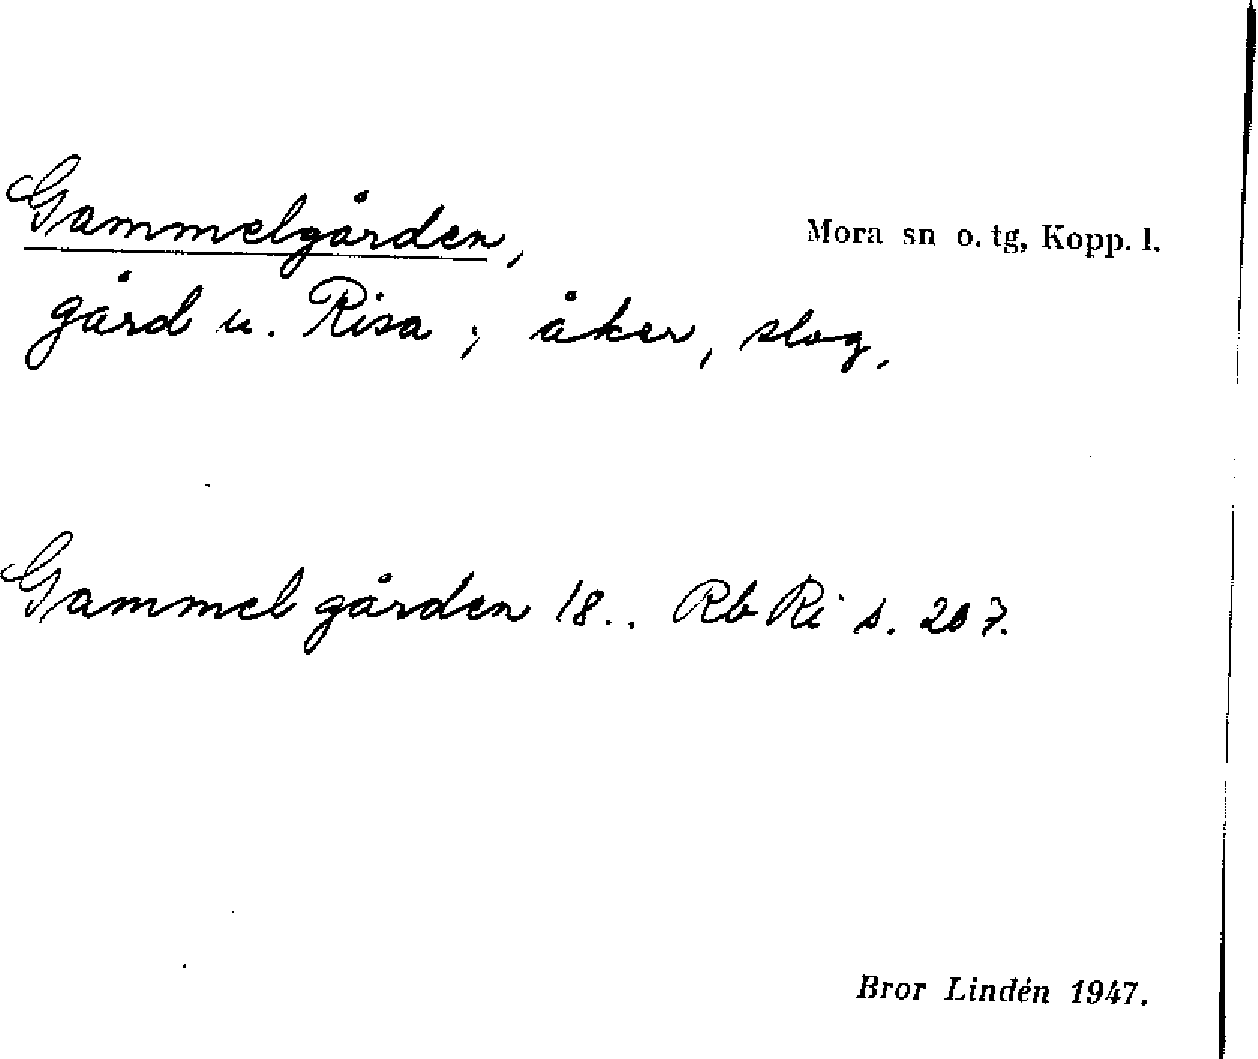 Gammelgården,
Mora sn o. tg, Kopp. l.
gård u. Risa; åker, slog.
Gammel gården 18.. Rb Ri s. 207.
Bror Lindén 1947.